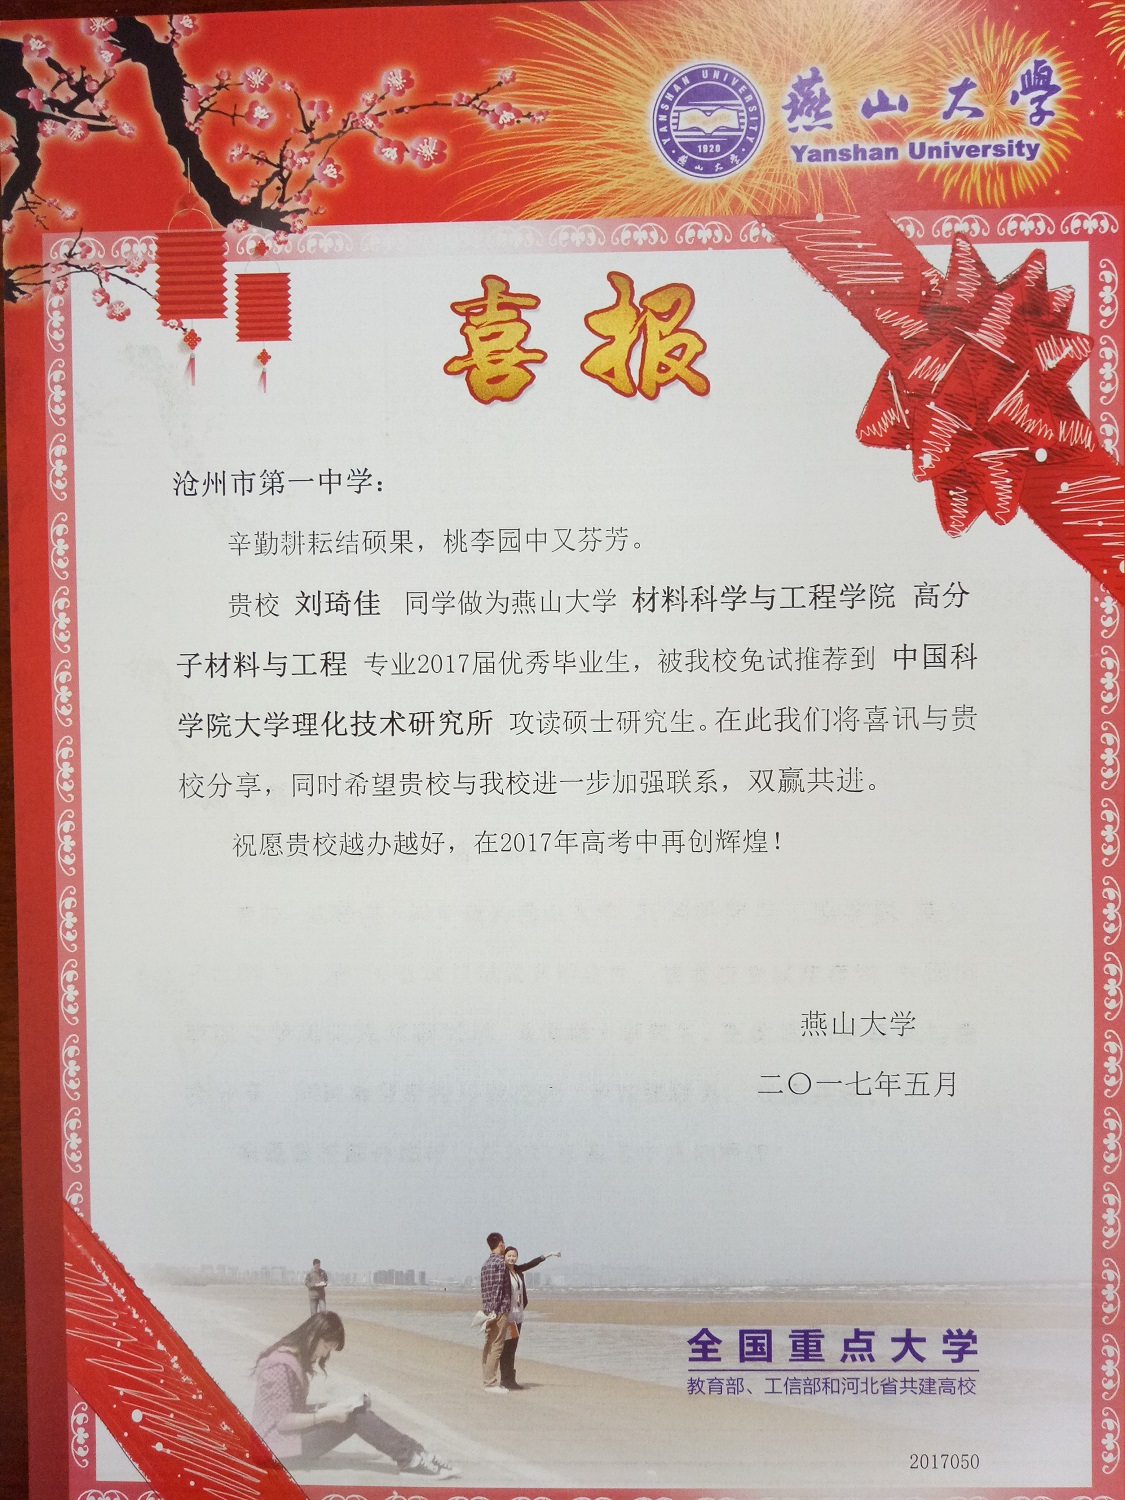 YANSHAN UNIVERSITY
1920
燕山大学
燕山大學
Yanshan University
喜报
沧州市第一中学：
辛勤耕耘结硕果，桃李园中又芬芳。
贵校 刘琦佳 同学做为燕山大学 材料科学与工程学院 高分
子材料与工程 专业2017届优秀毕业生，被我校免试推荐到 中国科
学院大学理化技术研究所 攻读硕士研究生。在此我们将喜讯与贵
校分享，同时希望贵校与我校进一步加强联系，双赢共进。
祝愿贵校越办越好，在2017年高考中再创辉煌！
燕山大学
二〇一七年五月
全国重点大学
教育部、工信部和河北省共建高校
2017050